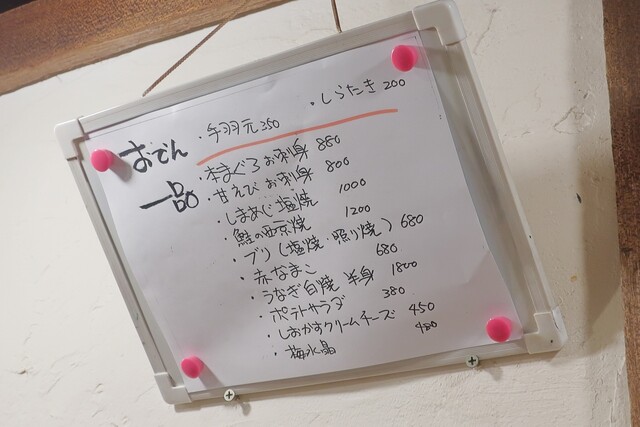 おでん ・手羽元350 ・しらたき 200
一品 ・本まぐろお刺身 880
・甘えびお刺身 800
・しまあじ塩焼 1000
・鮭の西京焼 1200
・ブリ(塩焼・照り焼) 680
・赤なまこ 680
・うなぎ白焼 半身 1800
・ポテトサラダ 380
・しおかすクリームチーズ 450
・梅水晶